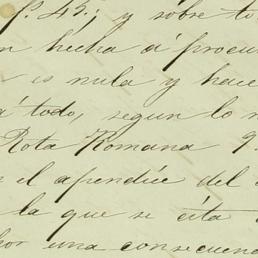 p. 45; y sobre to
n hecha á procu
es nula y hace
á todo, segun lo
Rota Romana 9
el apendice del
la que se cita
por una consecuen